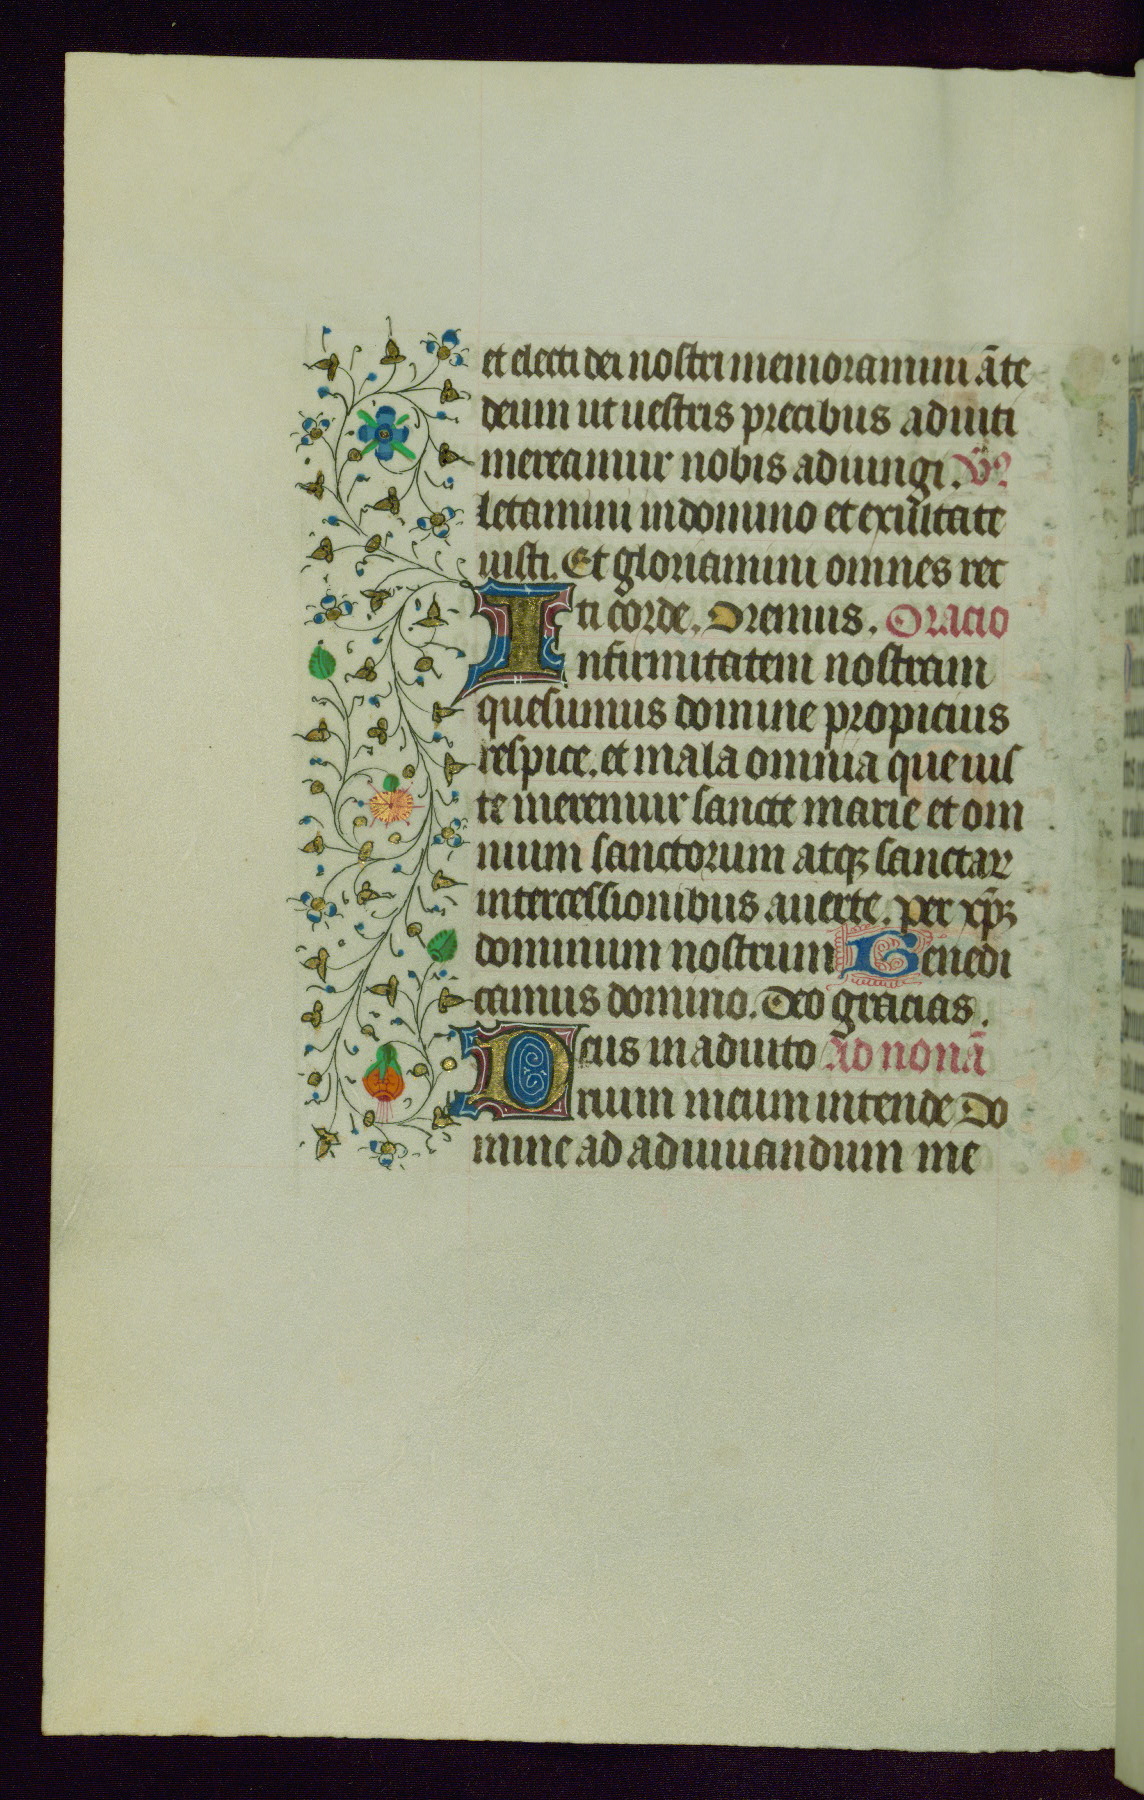 et electi dei nostri memoramini āte
deum ut uestris precibus adiuti
mereamur nobis adiungi. V̄s
letamini in domino et exultate
iusti. Et gloriamini omnes rec
ti corde. Oremus. Oracio
Infirmitatem nostram
quesumus domine propicius
respice. et mala omnia que ius
te meremur sancte marie et om
nium sanctorum atqꝫ sanctar
intercessionibus auerte. per xp̄ꝫ
dominum nostrum Benedi
camus domino. Deo gracias.
Deus in adiuto Ad nonā
rium meum intende Do
mine ad adiuuandum me